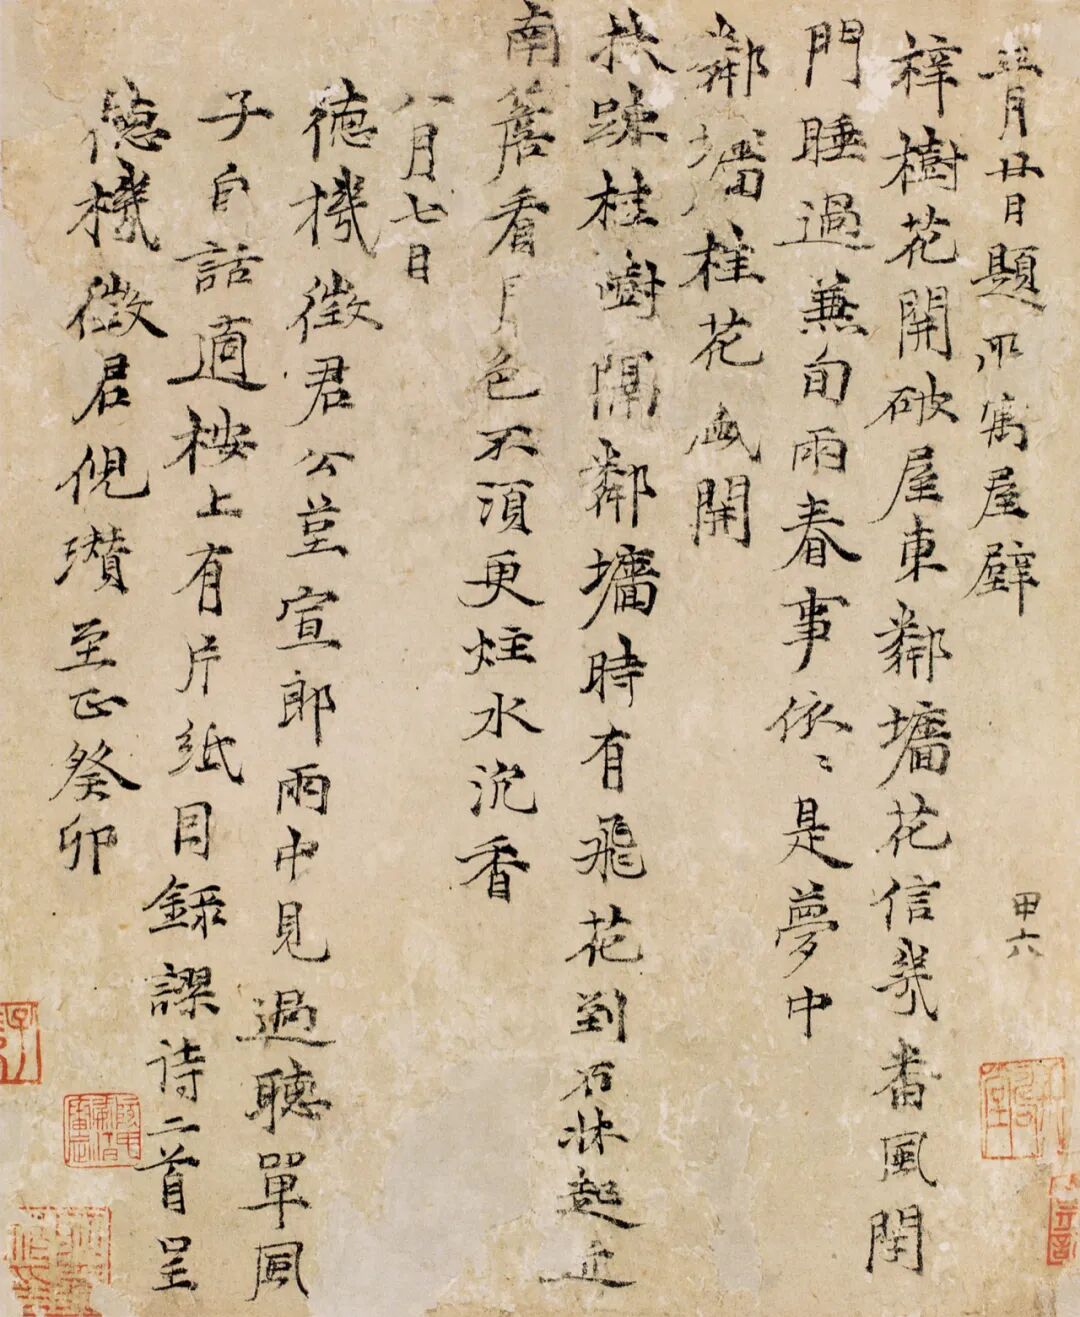 三月廿日題所寓屋壁
梓樹花開破屋東鄰墻花信幾番風閉
門睡過兼旬雨春事依〻是夢中
鄰墻桂花盛開
扶踈桂樹隔鄰墻時有飛花到石牀起近
南簷看月色不須更炷水沉香
八月七日
德機徵君公茔宣郎雨中見過聽單風
子自話適桉上有片紙目錄謬诗二首呈
德機徵君倪瓚至正癸卯
甲六